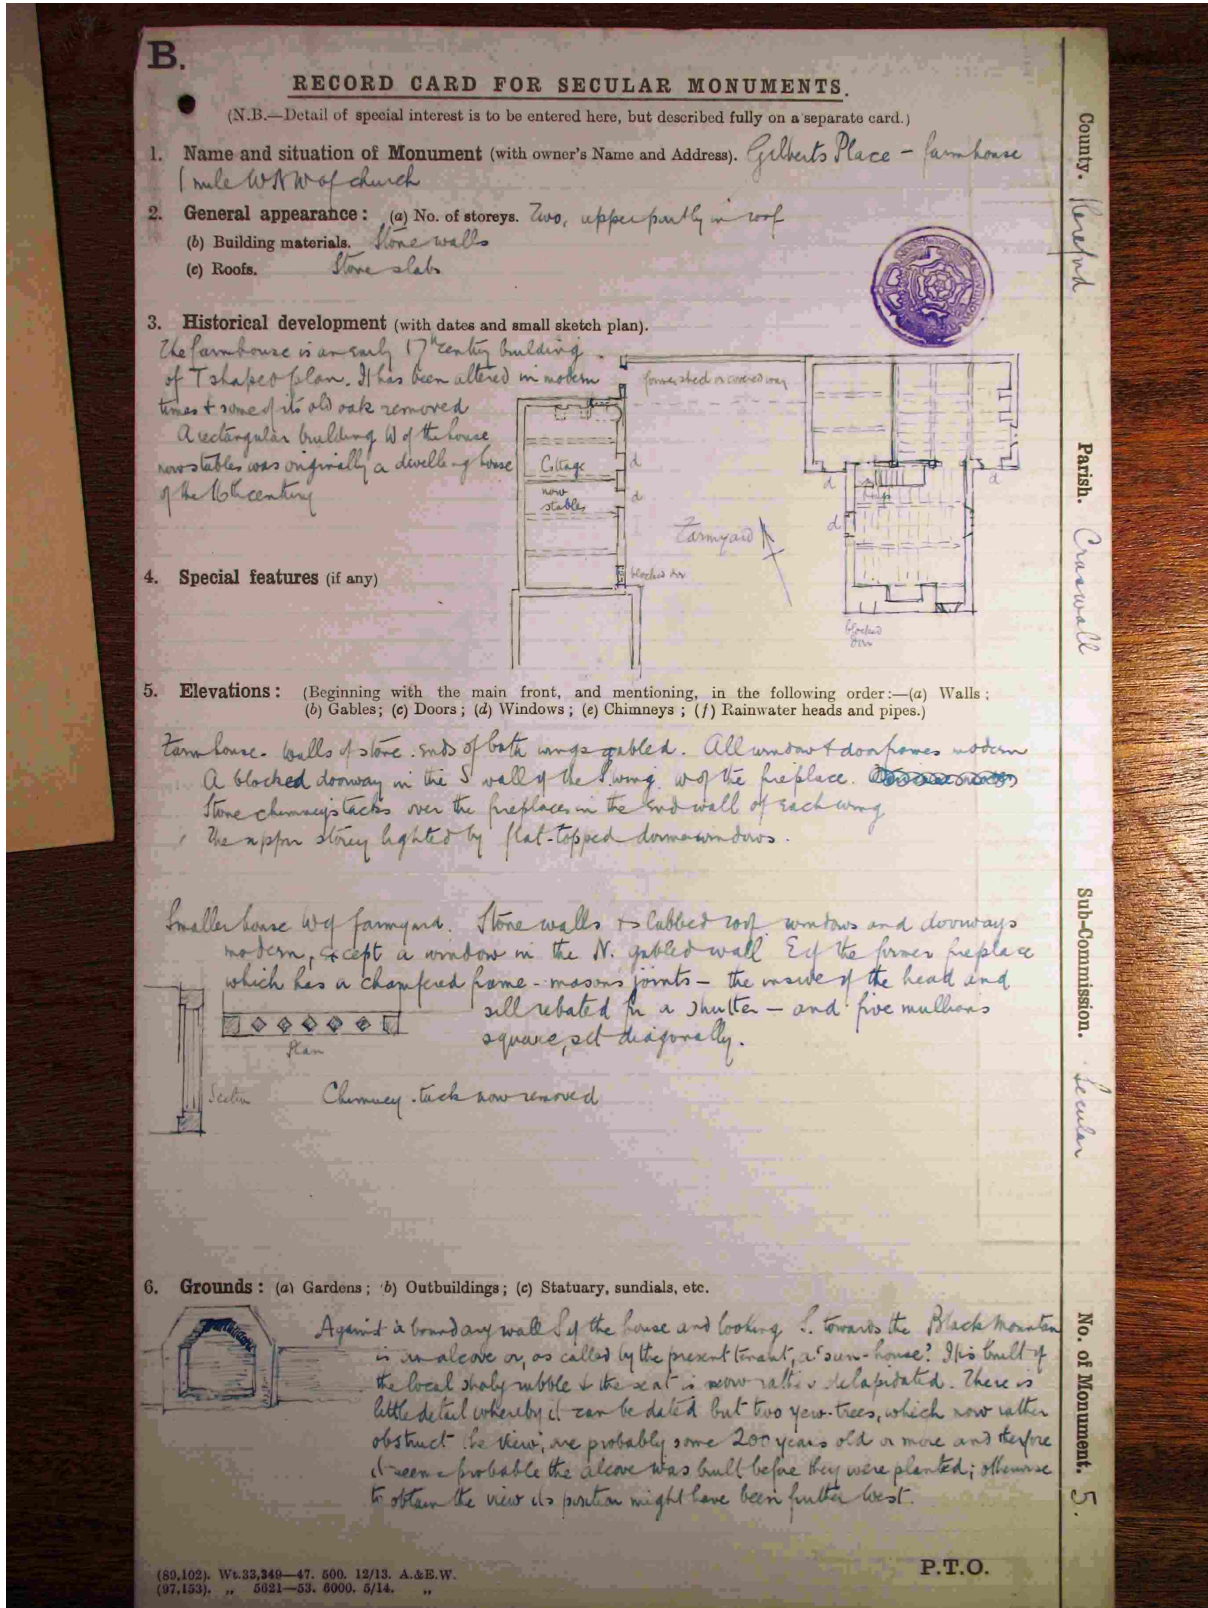 B.
RECORD CARD FOR SECULAR MONUMENTS.
(N.B.—Detail of special interest is to be entered here, but described fully on a separate card.)
1. Name and situation of Monument (with owner's Name and Address). Gilberts Place – farmhouse
1 mile WNW of church
2. General appearance: (a) No. of storeys. Two, upper partly in roof
(b) Building materials. Stone walls
(c) Roofs. Stone slabs
3. Historical development (with dates and small sketch plan).
The farmhouse is an early 17th century building
of T shaped plan. It has been altered in modern
times & some of its old oak removed
A rectangular building W of the house
now stables was originally a dwelling house
of the 16th century
former shed or covered way
Cottage
now
stables
d
d
blocked
Farmyard
d
d
d
blocked
4. Special features (if any)
5. Elevations: (Beginning with the main front, and mentioning, in the following order:—(a) Walls;
(b) Gables; (c) Doors; (d) Windows; (e) Chimneys; (f) Rainwater heads and pipes.)
Farmhouse. Walls of stone. ends of both wings gabled. All window & door frames modern
A blocked doorway in the S wall of the S. wing, W of the fireplace.
Stone chimneystacks over the fireplaces in the end wall of each wing
The upper storey lighted by flat-topped dormer windows.
Smaller house W of farmyard. Stone walls & slabbed roof. windows and doorways
modern, except a window in the N. gabled wall E of the former fireplace
which has a chamfered frame - masons joints – the inside of the head and
sill rebated for a shutter – and five mullions
square, set diagonally.
Plan
Section
Chimney-stack now removed
6. Grounds: (a) Gardens; (b) Outbuildings; (c) Statuary, sundials, etc.
Against a boundary wall S of the house and looking S. towards the Black Mountain
is an alcove or, as called by the present tenant, a 'sun-house'. It is built of
the local shaly rubble & the seat is now rather delapidated. There is
little detail whereby it can be dated but two yew-trees, which now rather
obstruct the view, are probably some 200 years old or more and therefore
it seems probable the alcove was built before they were planted; otherwise
to obtain the view its position might have been further West.
(89,102). Wt.33,349—47. 500. 12/13. A.&E.W.
(97,153). „ 5621—53. 6000. 5/14. „
P.T.O.
County. Hereford
Parish. Craswall
Sub-Commission. Secular
No. of Monument. 5.